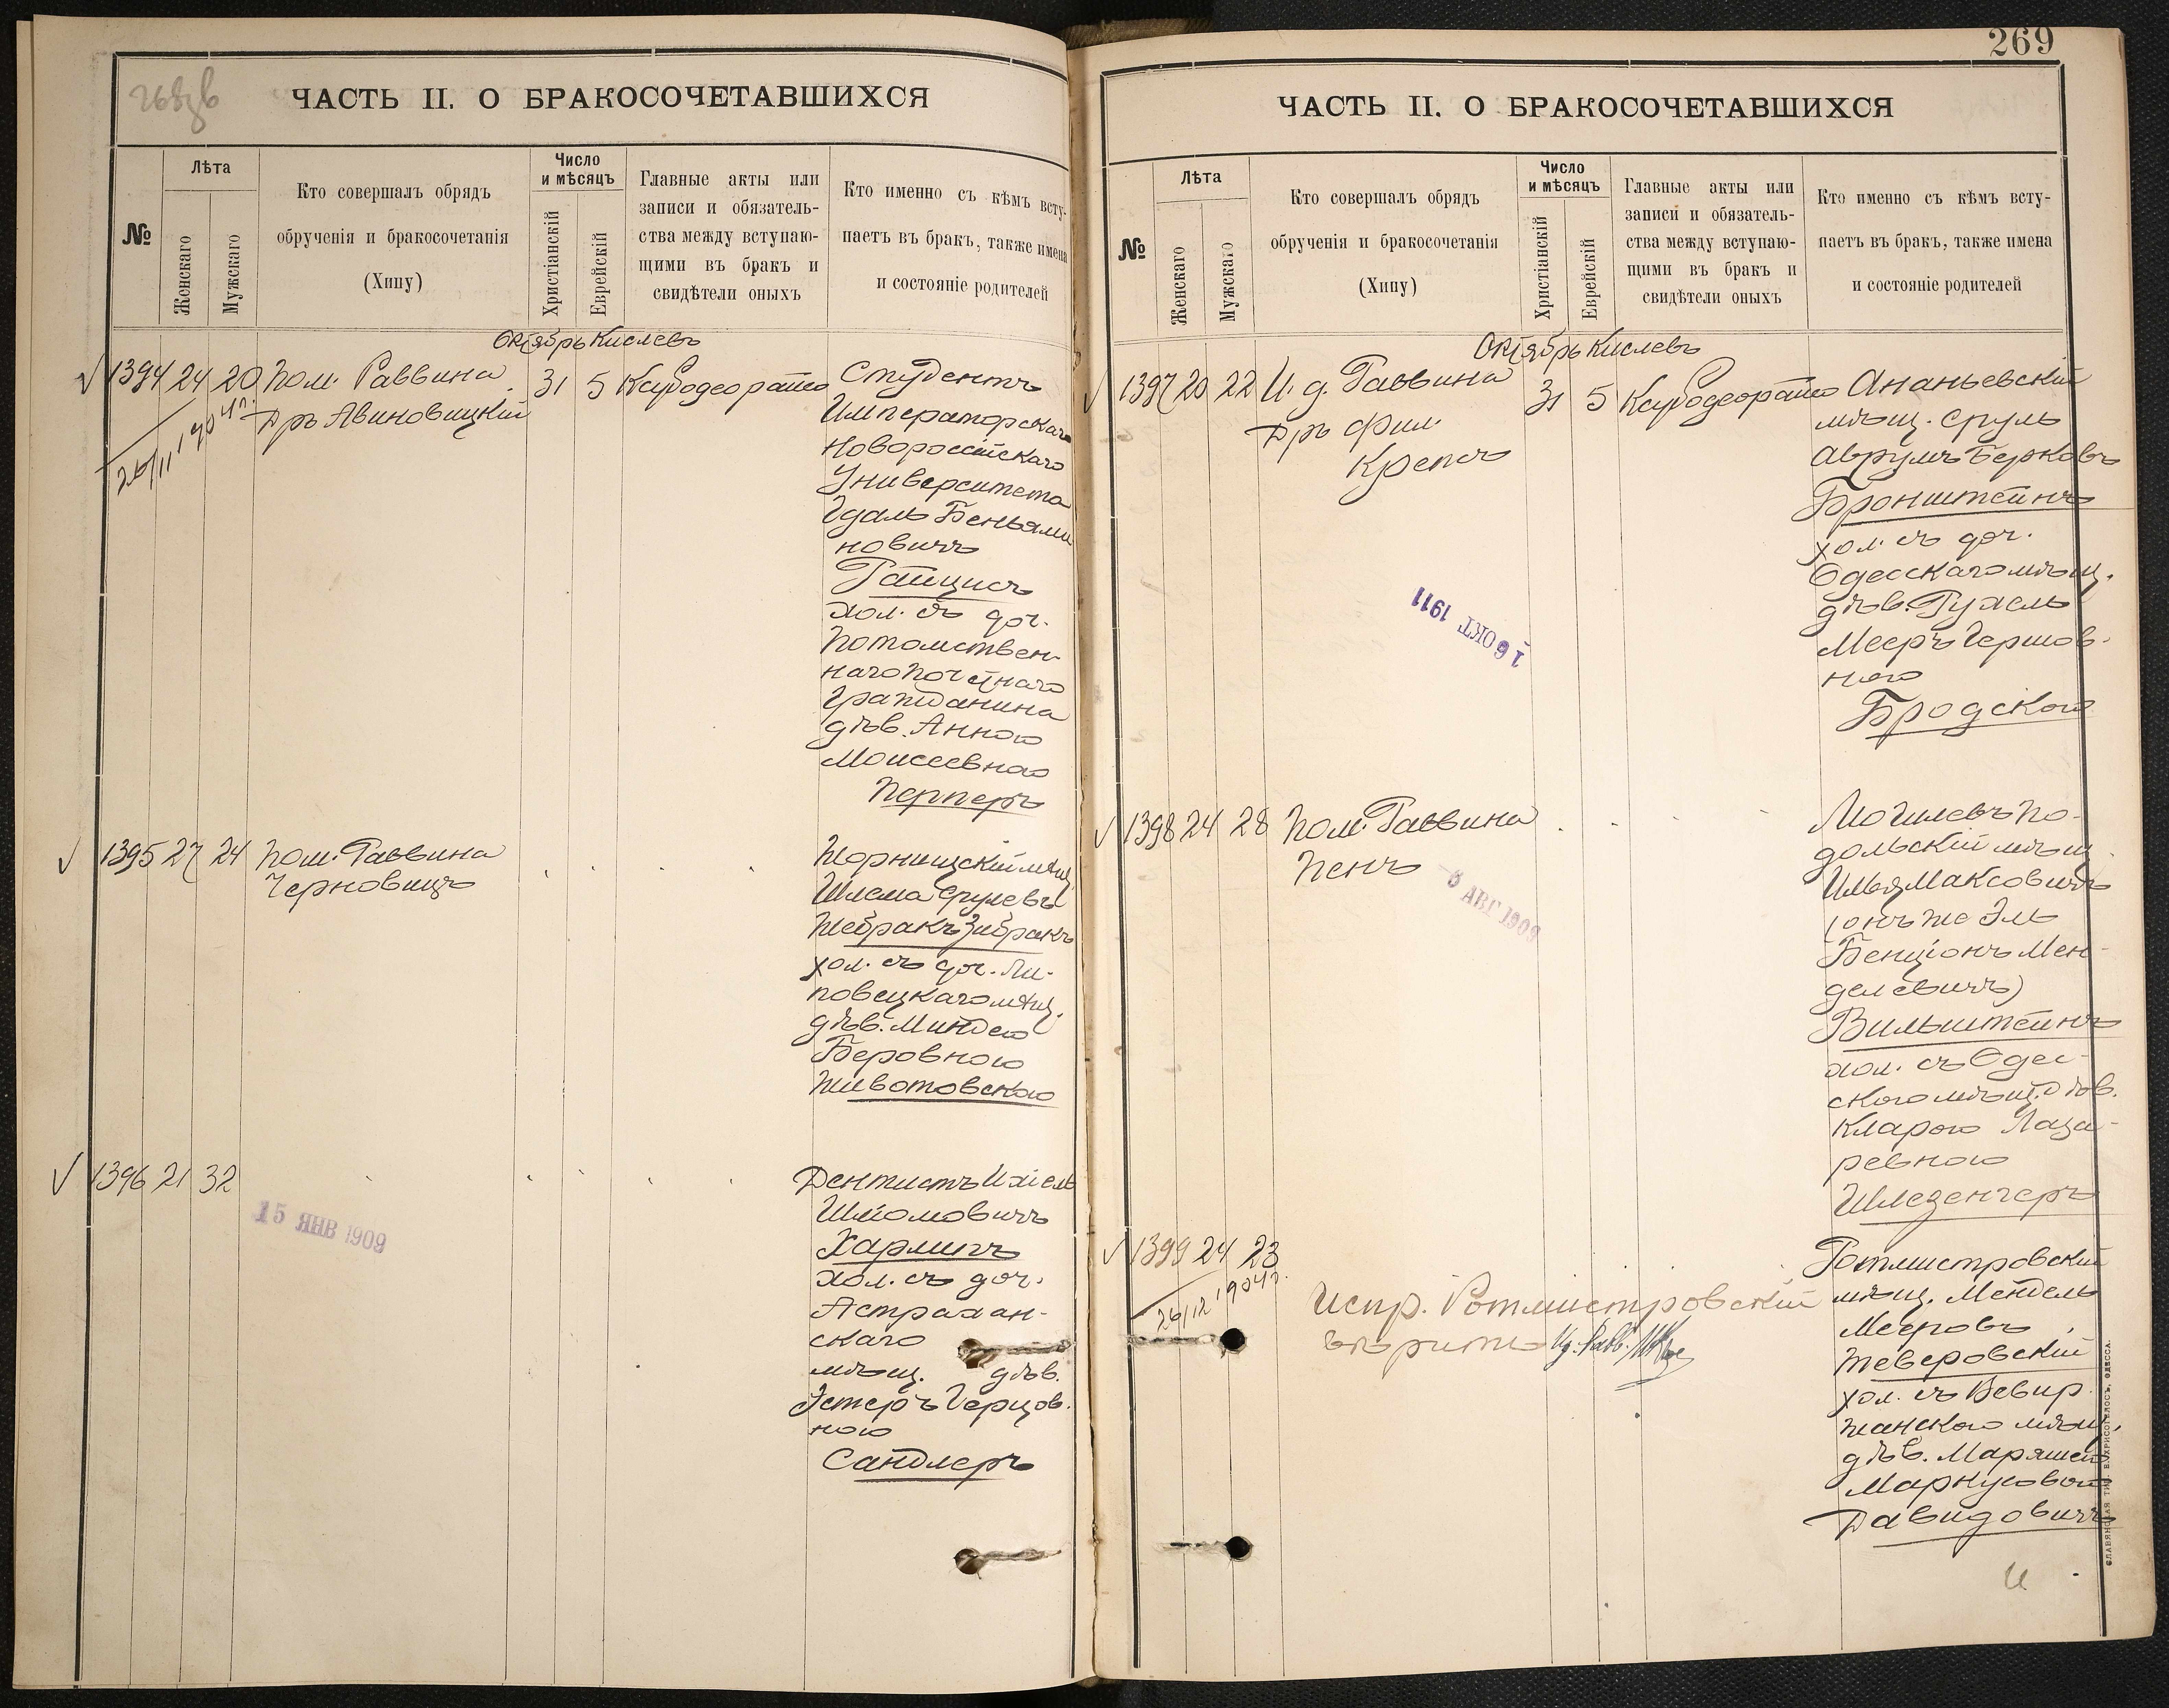 268об
ЧАСТЬ II. О БРАКОСОЧЕТАВШИХСЯ
№
Лѣта
Женскаго
Мужскаго
Кто совершалъ обрядъ
обрученія и бракосочетанія
(Хипу)
Число
и мѣсяцъ
Христіанскій
Еврейскій
Главные акты или
записи и обязатель-
ства между вступаю-
щими въ бракъ и
свидѣтели оныхъ
Кто именно съ кѣмъ всту-
паетъ въ бракъ, также имена
и состояніе родителей
Октябрь Кислевъ
1394 24 20 Пом. Раввина 31 5
Дръ Авиновицкій
26/11 1904 г.
Студентъ
Императорскаго
Новороссійскаго
Университета
Гдаль Беньями
новичъ
Райцисъ
хол. съ доч.
Потомствен-
наго Почетнаго
Гражданина
дѣв. Анною
Моисеевною
Перперъ
1395 27 24 Пом. Раввина
Черновицъ
Шлема Срулевъ
Жебракъ Зибракъ
хол. съ доч. Ли-
повецкаго мѣщ.
дѣв. Миндею
Беровною
Животовскою
1396 21 32
15 ЯНВ 1909
Дентистъ Ихіель
Шліомовичъ
Харлипъ
хол. съ доч.
Астрахан-
скаго
мѣщ. дѣв.
Эстеръ Герцов.
ною
Сандлеръ
269
ЧАСТЬ II. О БРАКОСОЧЕТАВШИХСЯ
№
Лѣта
Женскаго
Мужскаго
Кто совершалъ обрядъ
обрученія и бракосочетанія
(Хипу)
Число
и мѣсяцъ
Христіанскій
Еврейскій
Главные акты или
записи и обязатель-
ства между вступаю-
щими въ бракъ и
свидѣтели оныхъ
Кто именно съ кѣмъ всту-
паетъ въ бракъ, также имена
и состояніе родителей
Октябрь Кислевъ
1397 20 22 И. д. Раввина 31 5
Дръ Фил.
Крепсъ
16 ОКТ 1911
Ананьевскій
мѣщ. Сруль
Аврумъ Берковъ
Бронштейнъ
хол. съ доч.
Одесскаго мѣщ.
дѣв. Рухель
Мееръ Гершов-
ною
Бродскою
1398 24 28 Пом. Раввина
Пенъ
6 АВГ 1909
Могилевъ По-
дольскій мѣщ.
Илья Максовичъ
(онъ же Эль
Бенціонъ Мен-
делевичъ)
Вильштейнъ
хол. съ Одес-
скою мѣщ. дѣв.
Кларою Лаза-
ревною
Шлезенгеръ
1399 24 23
26/12 1904 г.
Испр. Ротмистровскій
вѣрить
Ротмистровскій
мѣщ. Мендель
Мееровъ
Теверовскій
хол. съ
мѣщ.
дѣв. Маряшею
Маркусовой
Давидовичъ
СЛАВЯНСКАЯ ТИП. Н. ХРИСОГЕЛОСЪ, ОДЕССА.